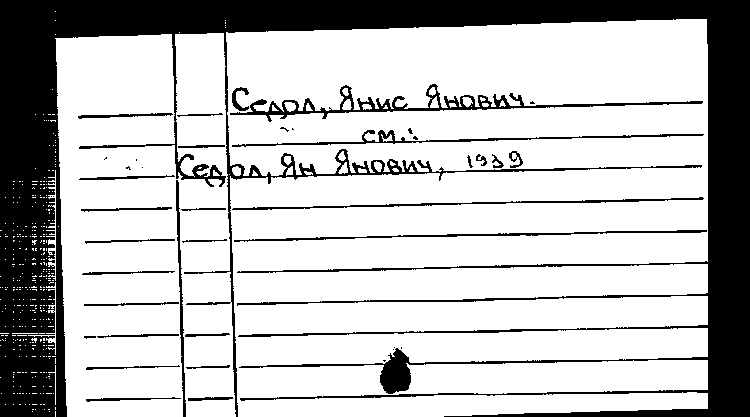 Седол, Янис Янович.
см.:
Седол, Ян Янович, 1939